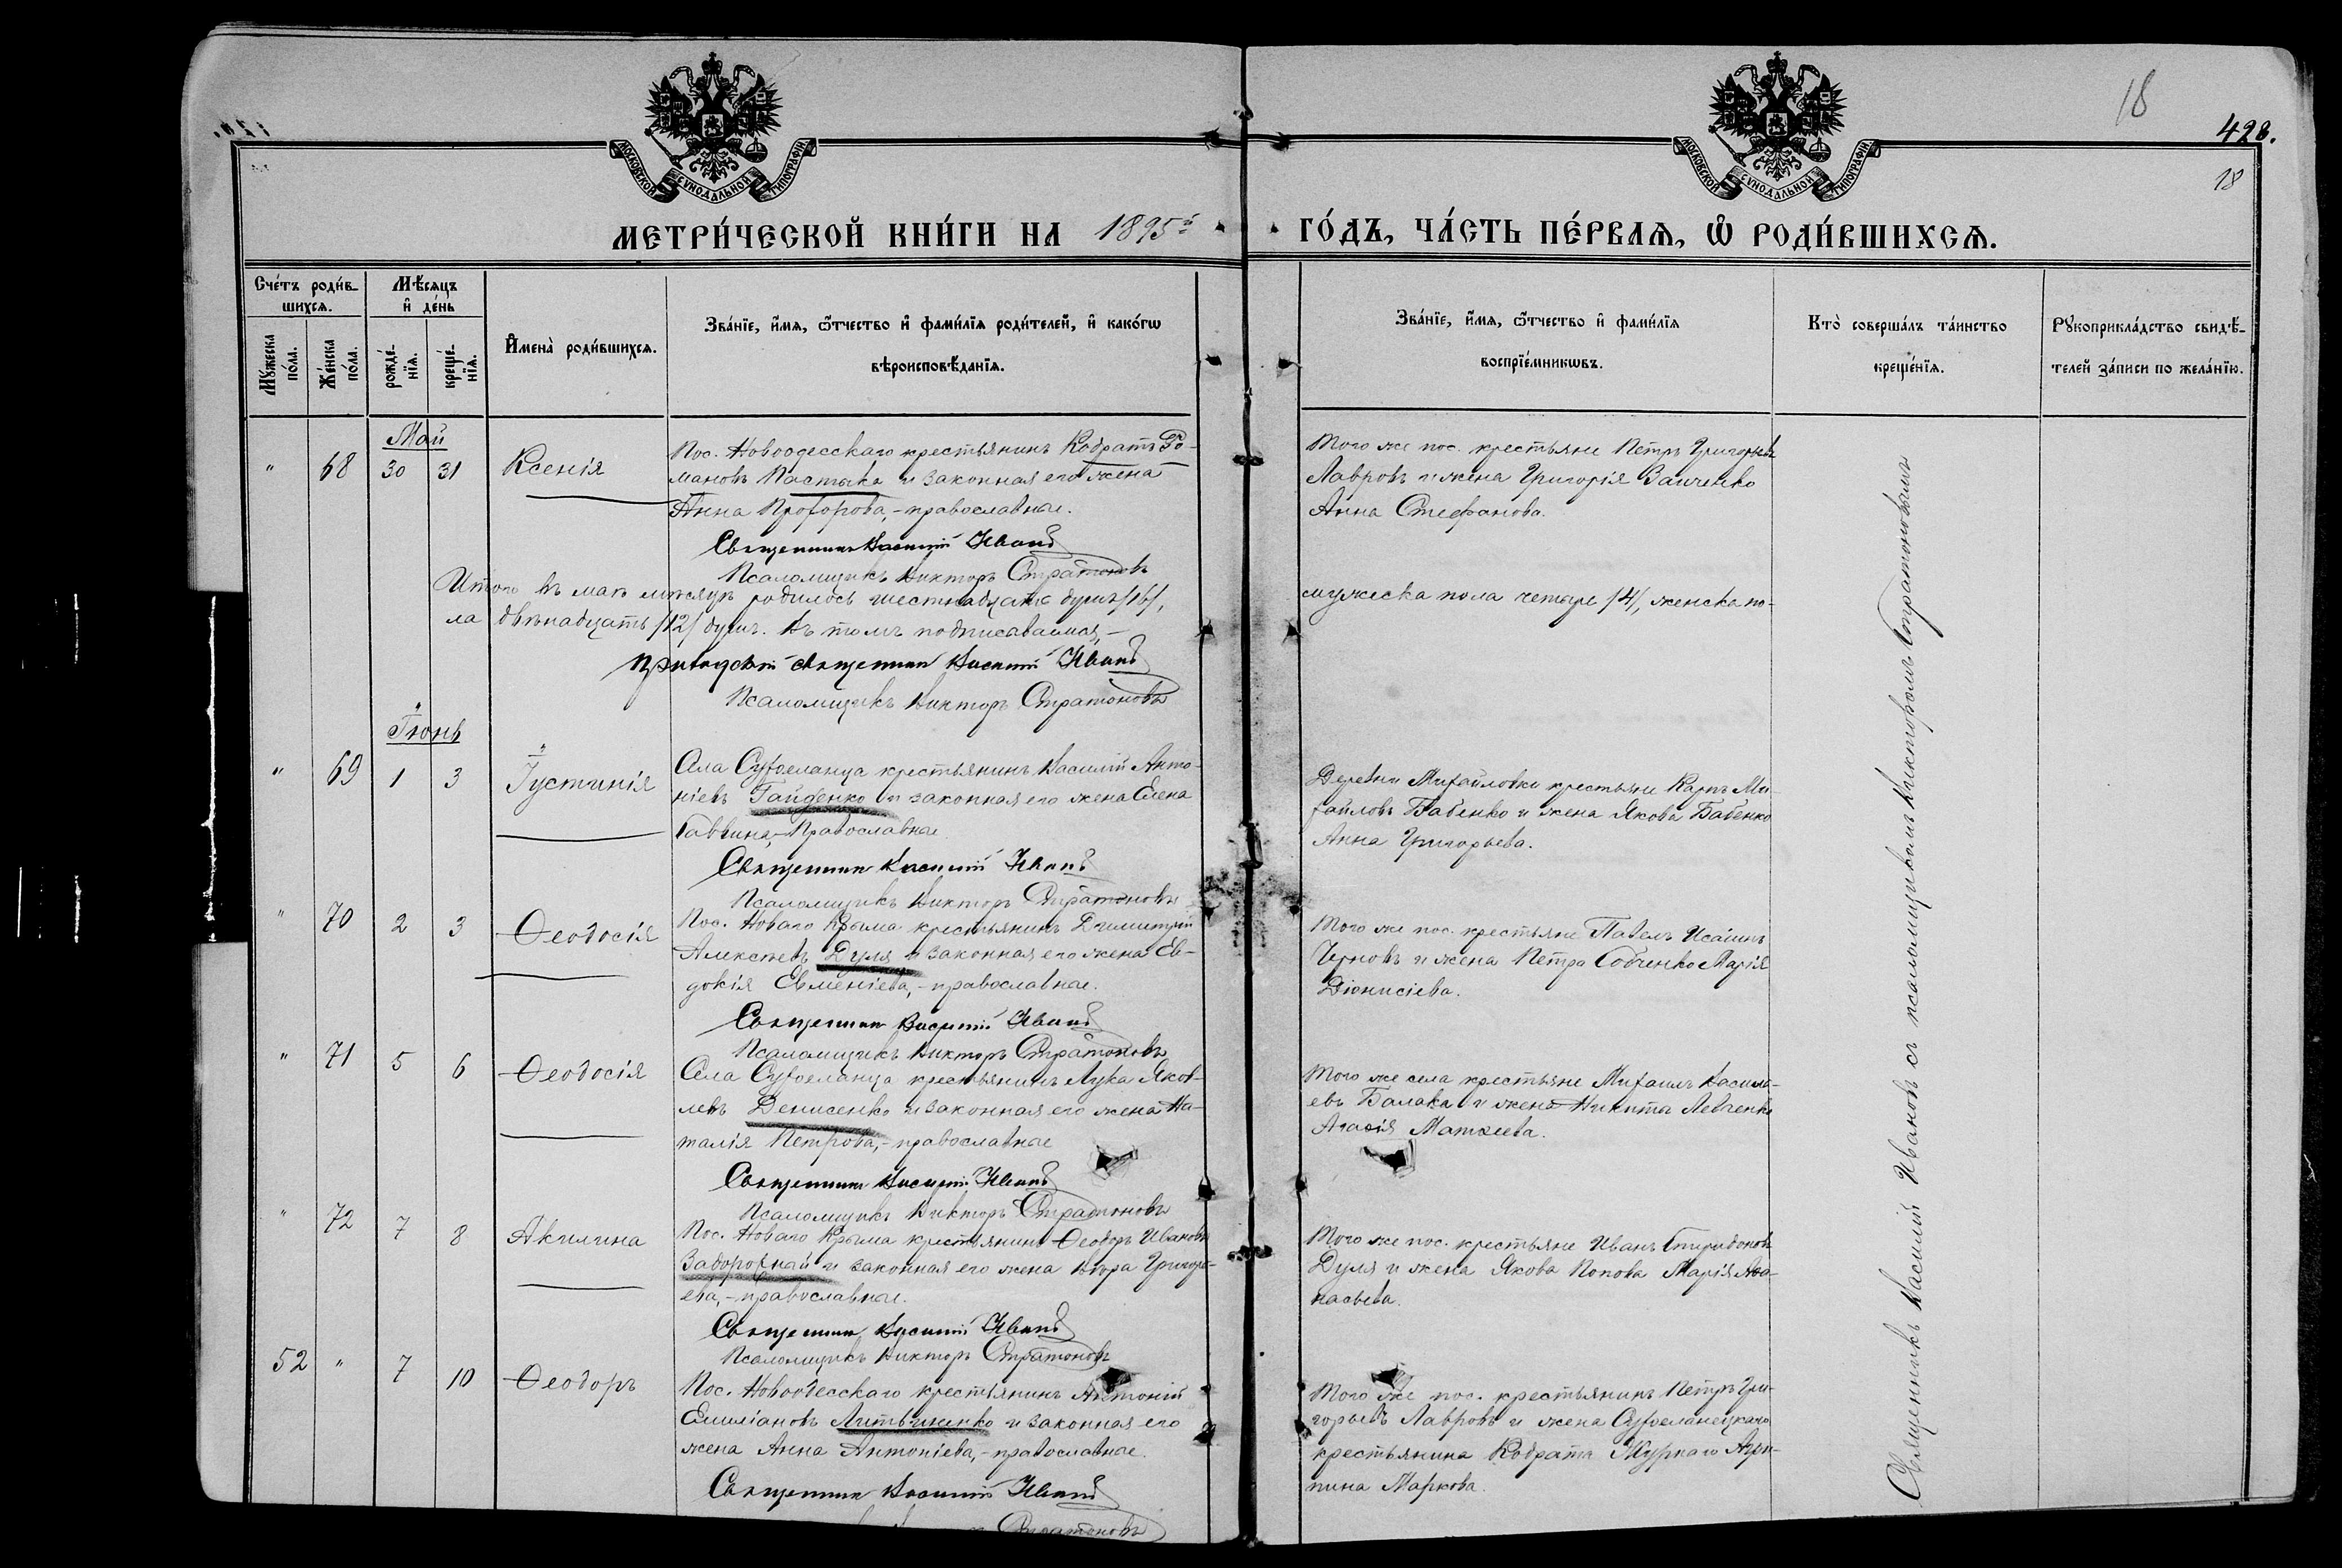 МОСКОВСКОЙ СУНОДАЛЬНОЙ ТИПОГРАФІИ
МОСКОВСКОЙ СУНОДАЛЬНОЙ ТИПОГРАФІИ
18
428.
18
МЕТРИ́ЧЕСКОЙ КНИ́ГИ НА 1895й ГО́ДЪ, ЧА́СТЬ ПЕ́РВАѦ, Ѡ РОДИ́ВШИХСѦ.
Сче́тъ роди́в-
шихсѧ.
Мꙋ́жеска по́ла.
Же́нска по́ла.
Мѣ́сѧцъ
и҆ де́нь
рожде́-нїѧ.
креще́-нїѧ.
И҆мена̀ роди́вшихсѧ.
Зва́нїе, и҆́мѧ, ѻ҆́тчество и҆ фами́лїѧ роди́телей, и҆ како́гѡ
вѣроисповѣ́данїѧ.
Зва́нїе, и҆́мѧ, ѻ҆́тчество и҆ фами́лїѧ
воспрїе́мникѡвъ.
Кто̀ соверша́лъ та́инство
креще́нїѧ.
Рꙋкоприкла́дство свидѣ́-
телей за́писи по жела́нїю.
Май
" 68 30 31 Ксенія
Пос. Новоодесскаго крестьянинъ Кодратъ Ро-
мановъ Пастыка и законная его жена
Анна Прохорова,- православные.
Священникъ Василій Ивановъ
Псаломщикъ Викторъ Стратоновъ
Того же пос. крестьяне Петръ Григорьевъ
Лавровъ и жена Григорія Заиченко
Анна Стефанова.
Итого въ маѣ мѣсяцѣ родилось шестнадцать душъ /16/, мужеска пола четыре /4/, женска по-
ла двѣнадцать /12/ душъ. Въ томъ подписываемся,-
Приходскій священникъ Василій Ивановъ
Псаломщикъ Викторъ Стратоновъ
Іюнь
" 69 1 3 Іустинія
Села Сухоеланца крестьянинъ Василій Анто-
ніевъ Гайденко и законная его жена Елена
Саввина,- Православные
Священникъ Василій Ивановъ
Псаломщикъ Викторъ Стратоновъ
Деревни Михайловки крестьяне Карпъ Ми-
хайловъ Бабенко и жена Якова Бабенко
Анна Григорьева.
" 70 2 3 Ѳеодосія
Пос. Новаго Крыма крестьянинъ Димитрій
Алексѣевъ Дуля и законная его жена Ев-
докія Евменіева,- православные.
Священникъ Василій Ивановъ
Псаломщикъ Викторъ Стратоновъ
Того же пос. крестьяне Павелъ Исаіинъ
Черновъ и жена Петра Собченко Марія
Діонисіева.
" 71 5 6 Ѳеодосія
Села Сухоеланца крестьянинъ Лука Яков-
левъ Денисенко и законная его жена На-
талія Петрова,- православные
Священникъ Василій Ивановъ
Псаломщикъ Викторъ Стратоновъ
Того же села крестьяне Михаилъ Василь-
евъ Балака и жена Никиты Левченко
Агафія Матѳеева.
" 72 7 8 Акилина
Пос. Новаго Крыма крестьянинъ Ѳеодоръ Ивановъ
Задорожный и законная его жена Вѣра Григорь-
ева,- православные.
Священникъ Василій Ивановъ
Псаломщикъ Викторъ Стратоновъ
Того же пос. крестьяне Иванъ Спиридоновъ
Дуля и жена Якова Попова Марія Аѳа-
насьева.
52 " 7 10 Ѳеодоръ
Пос. Новоодесскаго крестьянинъ Антоній
Емиліановъ Литвиненко и законная его
жена Анна Антоніева,- православные.
Священникъ Василій Ивановъ
Стратоновъ
Того же пос. крестьянинъ Петръ Гри-
горьевъ Лавровъ и жена Сухоеланецкаго
крестьянина Кодрата Журнаго Агри-
пина Маркова.
Священникъ Василій Ивановъ съ псаломщикомъ Викторомъ Стратоновымъ